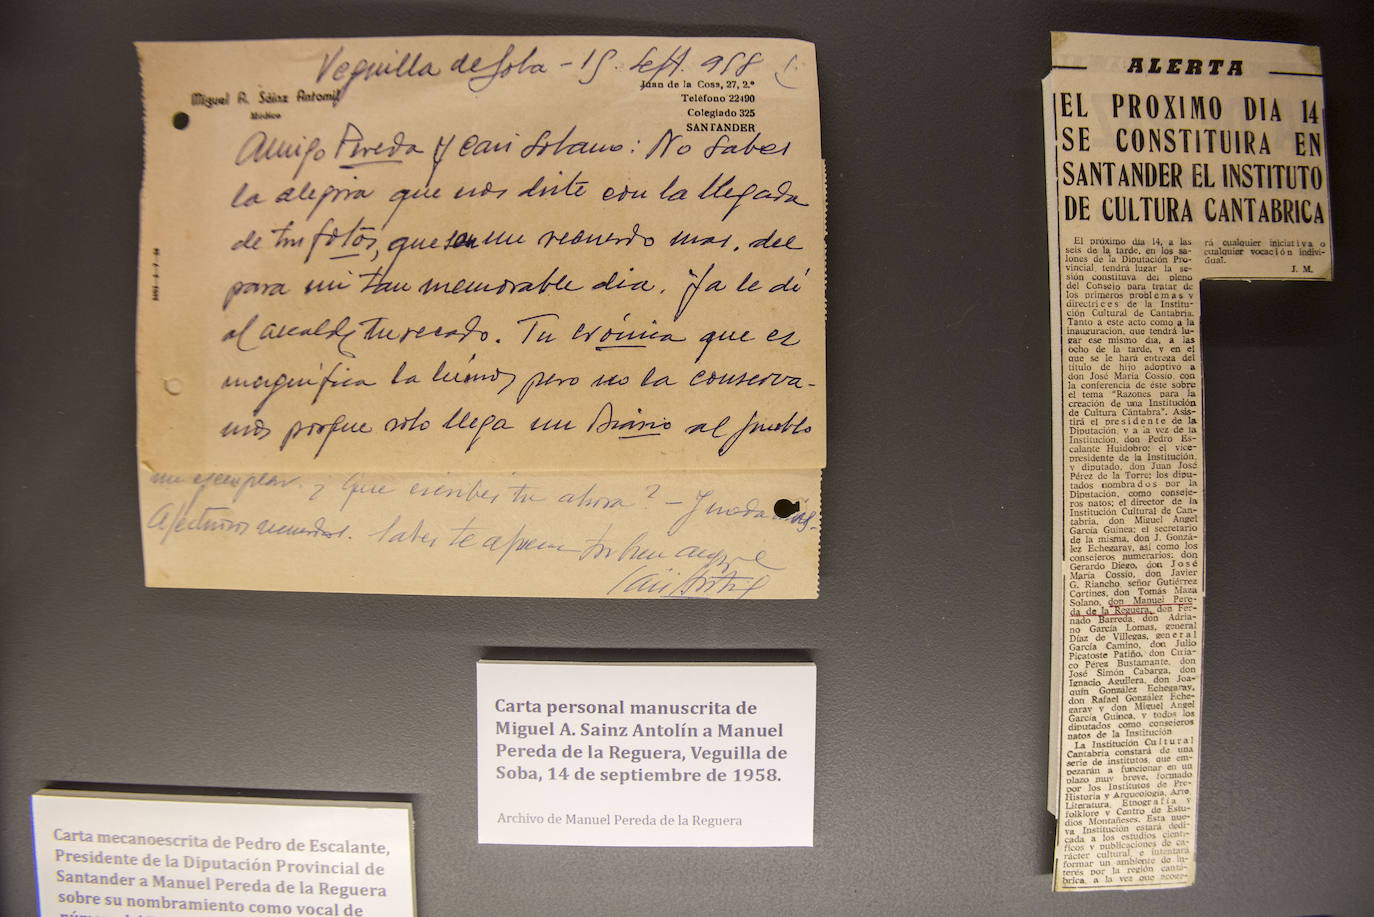 Veguilla de Soba - 15. Sept. 958
Miguel A. Sáinz Antomil
Médico
Juan de la Cosa, 27, 2.º
Teléfono 22490
Colegiado 325
SANTANDER
Amigo Pereda y casi Sobano: No sabes
la alegria que nos diste con la llegada
de tus fotos, que son un recuerdo mas, del
para mi tan memorable dia. Ya le di
al alcalde tu recado. Tu crónica que es
magnífica la leimos pero no la conserva-
mos porque solo llega un Diario al pueblo
un ejemplar. ¿Que escribes tu ahora? -
Afectuosos recuerdos. Sabes te aprecia tu buen amigo
Carta personal manuscrita de
Miguel A. Sainz Antolín a Manuel
Pereda de la Reguera, Veguilla de
Soba, 14 de septiembre de 1958.
Archivo de Manuel Pereda de la Reguera
Carta mecanoescrita de Pedro de Escalante,
Presidente de la Diputación Provincial de
Santander a Manuel Pereda de la Reguera
sobre su nombramiento como vocal de
ALERTA
EL PROXIMO DIA 14
SE CONSTITUIRA EN
SANTANDER EL INSTITUTO
DE CULTURA CANTABRICA
El próximo día 14, a las
seis de la tarde, en los sa-
lones de la Diputación Pro-
vincial, tendrá lugar la se-
sión constitutiva del pleno
del Consejo para tratar de
los primeros problemas y
directrices de la Institu-
ción Cultural de Cantabria.
Tanto a este acto como a la
inauguración, que tendrá lu-
gar ese mismo día, a las
ocho de la tarde, y en el
que se le hará entrega del
título de hijo adoptivo a
don José María Cossío, con
la conferencia de éste sobre
el tema "Razones para la
creación de una Institución
de Cultura Cántabra". Asis-
tirá el presidente de la
Diputación, y a la vez de la
Institución, don Pedro Es-
calante Huidobro; el vice-
presidente de la Institución,
y diputado, don Juan José
Pérez de la Torre; los dipu-
tados nombrados por la
Diputación, como conseje-
ros natos; el director de la
Institución Cultural de Can-
tabria, don Miguel Angel
García Guinea; el secretario
de la misma, don J. Gonzá-
lez Echegaray, así como los
consejeros numerarios: don
Gerardo Diego, don José
María Cossío, don Javier
G. Riancho, señor Gutiérrez
Cortines, don Tomás Maza
Solano, don Manuel Pere-
da de la Reguera, don Fer-
nado Barreda, don Adria-
no García Lomas, general
Díaz de Villegas, general
García Camino, don Julio
Picatoste Patiño, don Ciria-
co Pérez Bustamante, don
José Simón Cabarga, don
Ignacio Aguilera, don Joa-
quín González Echegaray,
don Rafael González Eche-
garay y don Miguel Angel
García Guinea, y todos los
diputados como consejeros
natos de la Institución
La Institución Cultural
Cantabria constará de una
serie de institutos, que em-
pezarán a funcionar en un
plazo muy breve, formado
por los Institutos de Pre-
Historia y Arqueología, Arte,
Literatura, Etnografía y
folklore y Centro de Estu-
dios Montañeses. Esta nue-
va Institución estará dedi-
cada a los estudios cientí-
ficos y publicaciones de ca-
rácter cultural e intentará
formar un ambiente de in-
terés por la región cantá-
brica, a la vez que acoge-
rá cualquier iniciativa o
cualquier vocación indivi-
dual.
J. M.